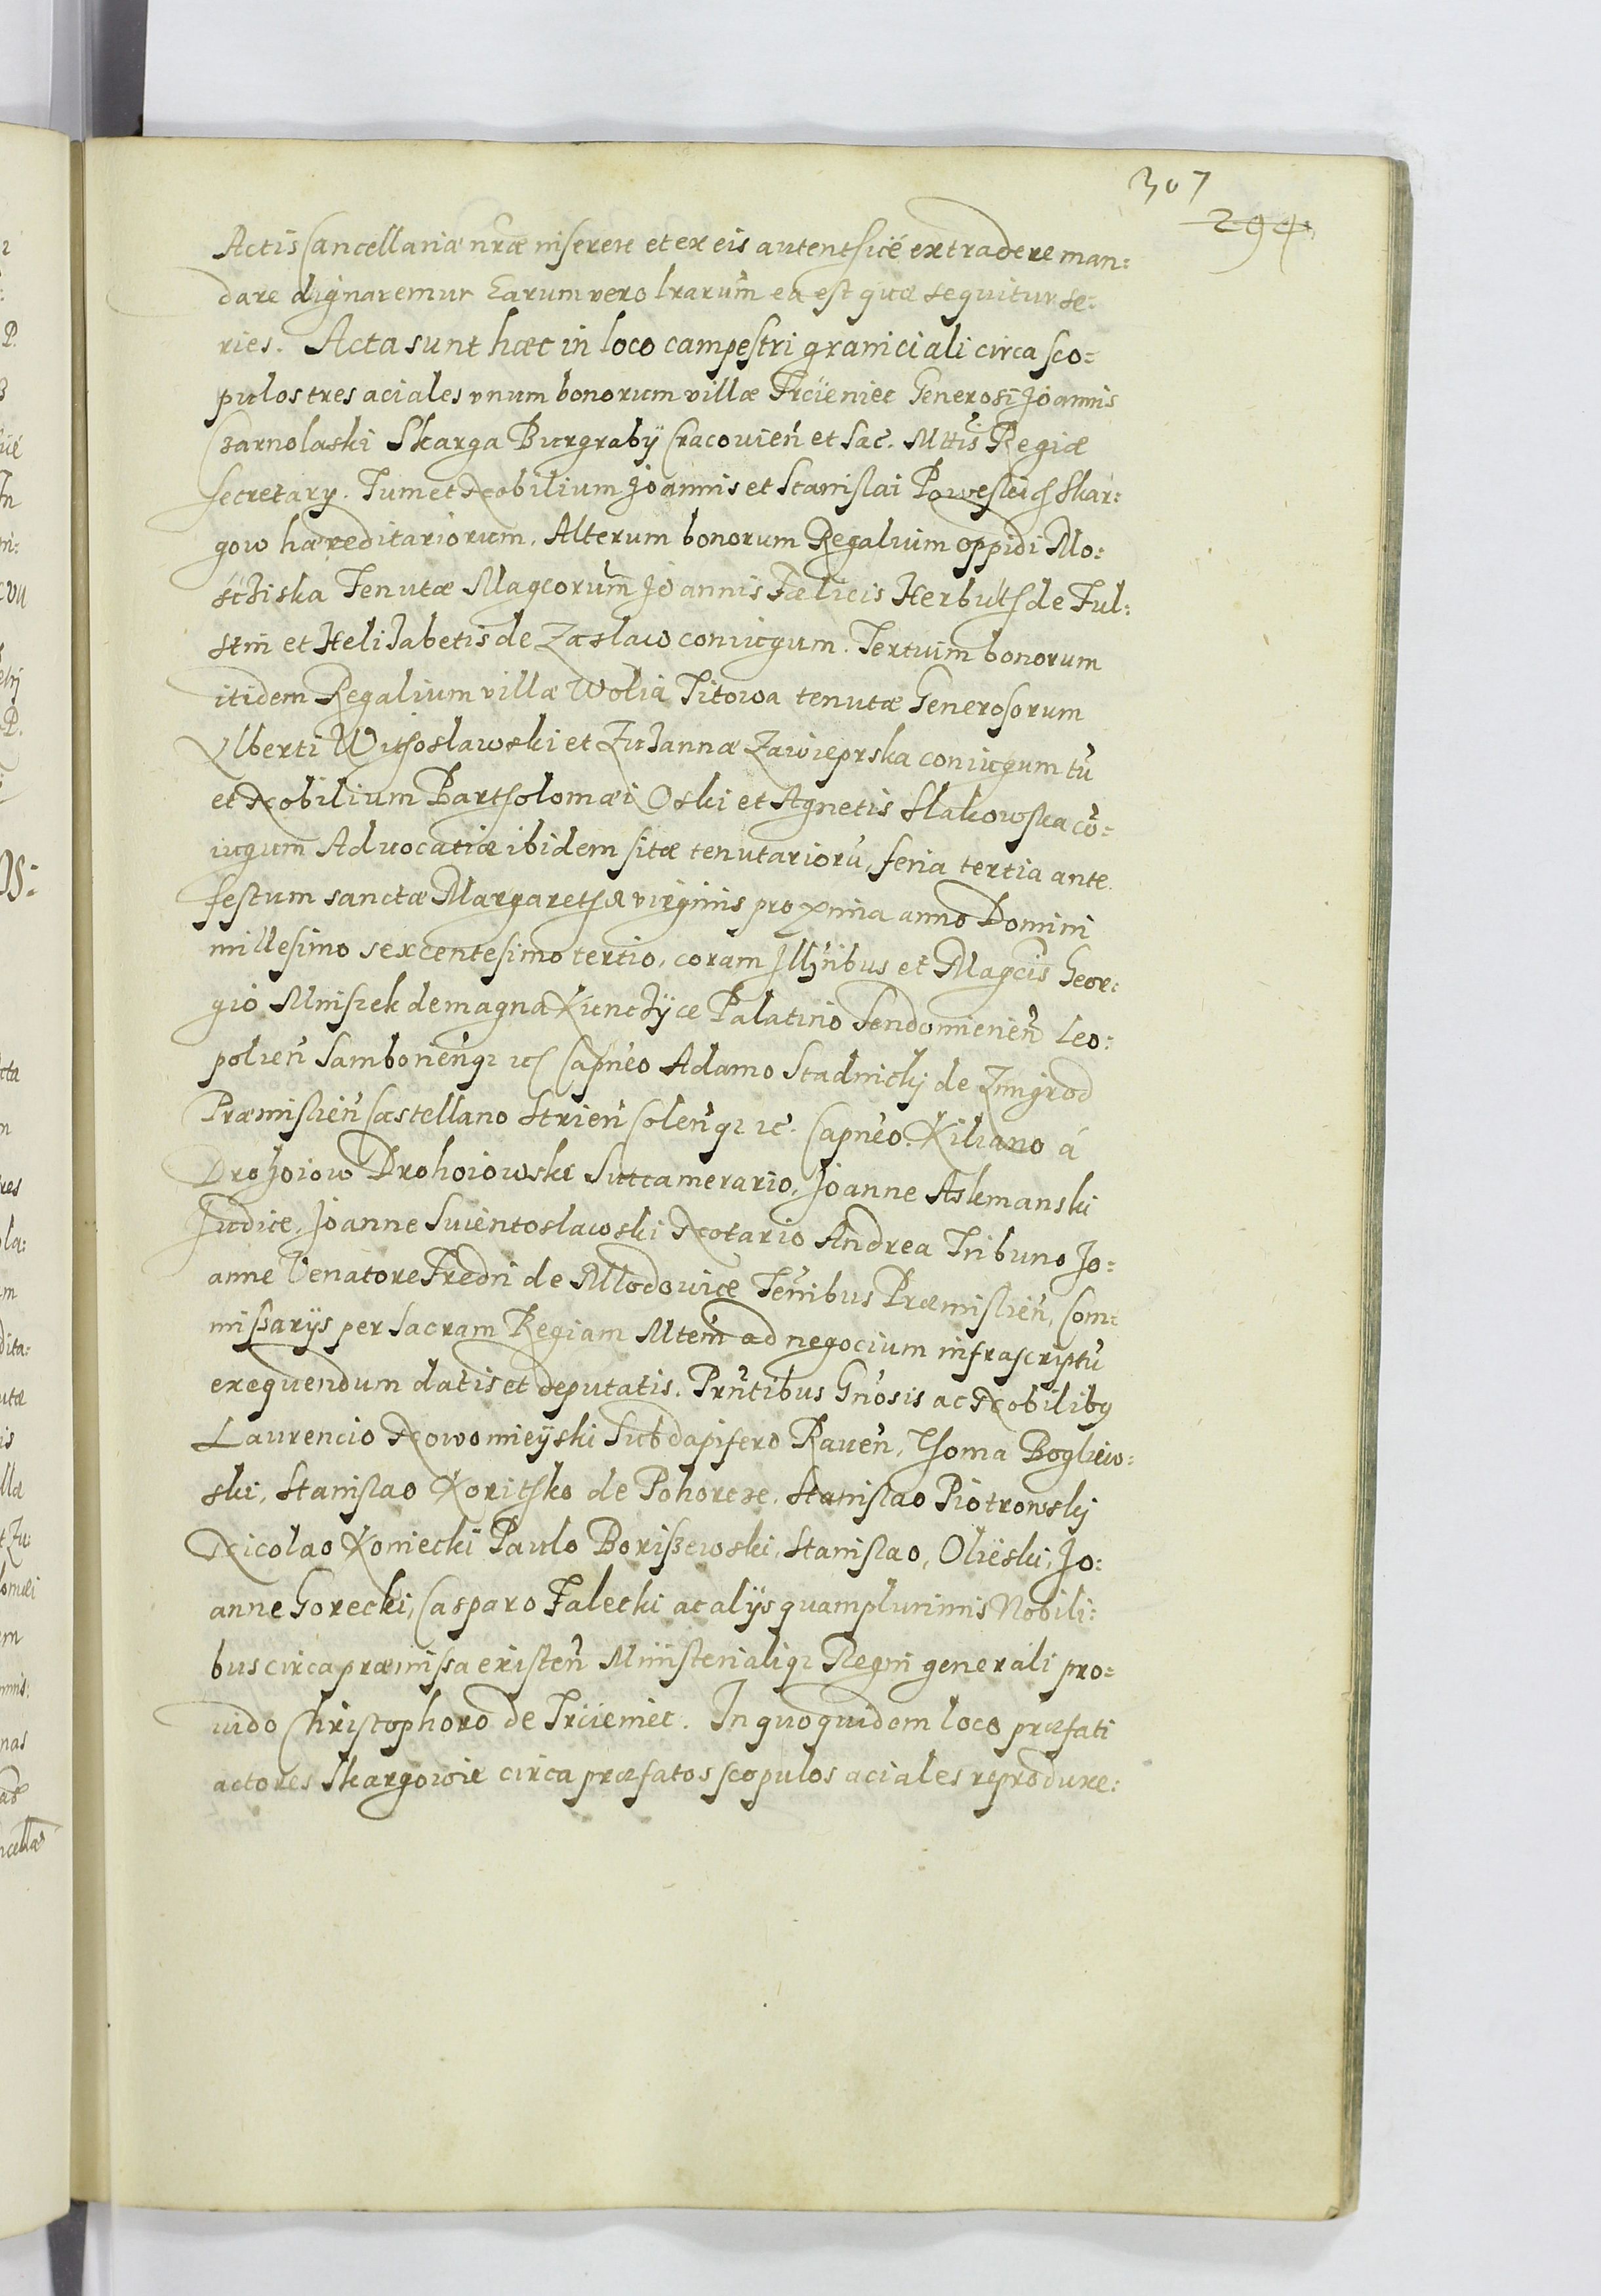 307
294
Actis Cancellariæ nr̃æ inserere et ex eis autenthicé extradere man:
dare dignaremur Earum vero lrarum̃ ea est quæ sequitur se:
ries. Acta sunt hæc in loco campestri graniciali circa sco:
pulos tres aciales vnum bonorum villæ Trcieniec Generosi Joannis
Czarnolaski Skarga Burgrabÿ Cracouień et Sac. Mttis Regiæ
secretarÿ. Tum et Nobilium Joannis et Stanislai Skar:
gow hæreditariorum. Alterum bonorum Regalium oppidi Mo:
śćziska Tenutæ Magcorum̃ Joannis Fœlicis Herbuth de Ful:
stin et Helizabetis de Zaslaw coniugum. Tertium bonorum
itidem Regalium villæ Wolia Titowa tenutæ Generosorum
Alberti Withoslawski et Zuzannæ Zawieprska coniugum tũ
et Nobilium Bartholomæi Oski et Agnetis Slakowska cõ:
iugum Aduocatiæ ibidem sitæ tenutariorũ, feria tertia ante
festum sanctæ Margarethæ virginis proxima anno Domini
millesimo sexcentesimo tertio, coram Jll̃ribus et Magcis̃ Geor:
gio Mnisзek de magna Kunczÿce Palatino Sendomirień Leo:
polień Samborieńqꝫ ꝛcͨ Capńeo Adamo Stadnickÿ de Zmigrod
Præmislień Castellano Strień Soleńqꝫ ꝛc. Capńeo. Kiliano á
Drohoiow Drohoiowski Succamerario, Joanne Askmanski
Judice, Joanne Swientoslawski Notario Andrea Tribuno Jo:
anne Venatore Fredri de Mlodowice Teŕribus Præmislień, Com:
missarÿs per Sacram Regiam Mtem̃ ad negocium infrascriptũ
exequendum datis et deputatis. Prñtibus Gńosis ac Nobilibꝰ
Laurencio Nowomieÿski Subdapifero Raueń, Thoma Bogliew:
ski, Stanislao Korithko de Pohorcze, Stanislao Piotrowskÿ
Nicolao Koniecki Paulo Borissewski, Stanislao, Olieski, Jo:
anne Gorecki, Casparo Falecki ac alÿs quamplurimis Nobili:
bus circa præmissa existeń Ministerialiqꝫ Regni generali pro:
uido Christophoro de Trciemiec. In quoquidem loco præfati
actores Skargowie circa præfatos scopulos aciales reproduxe: